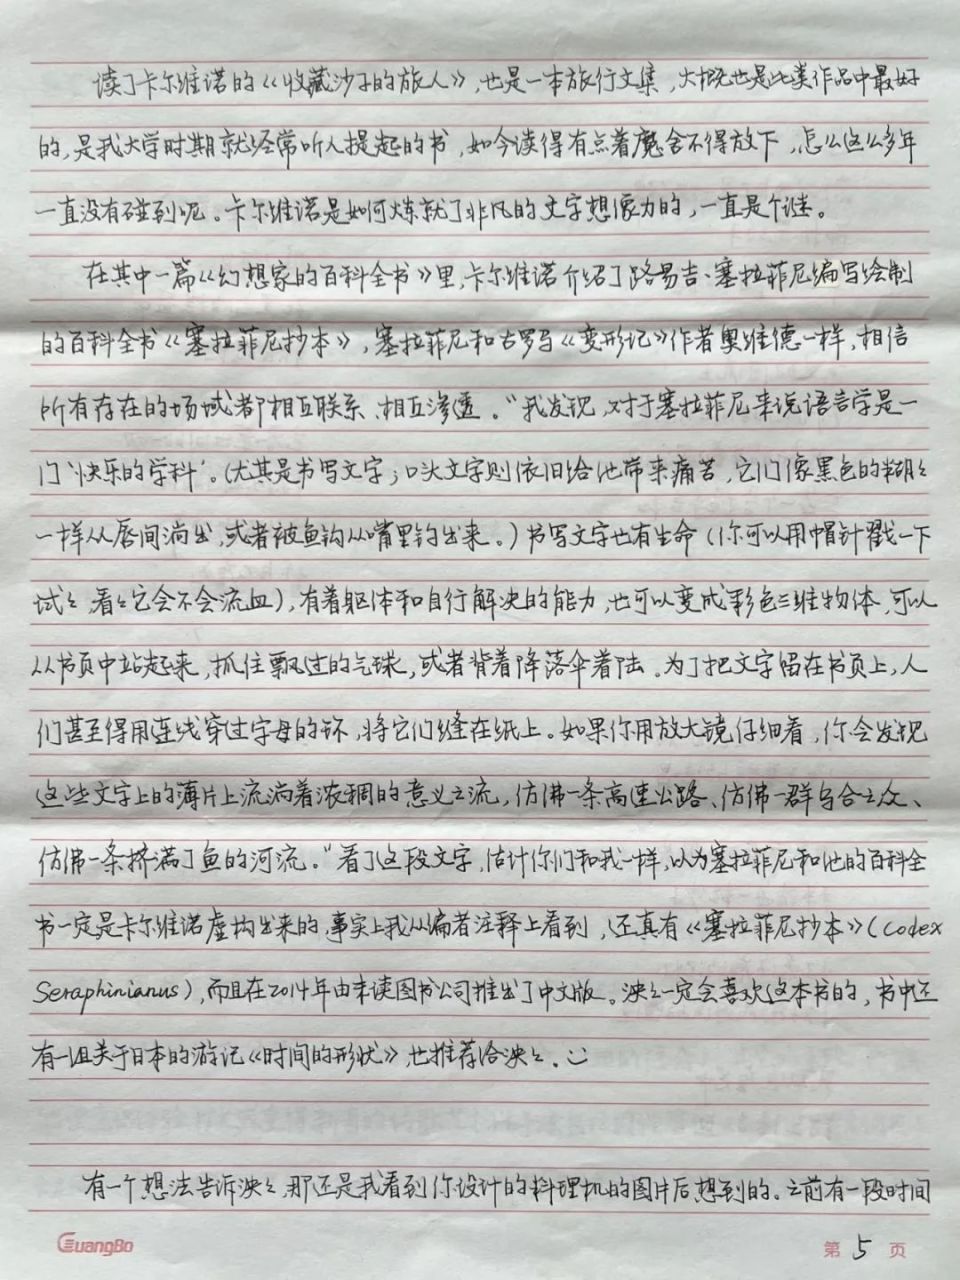 读了卡尔维诺的《收藏沙子的旅人》，也是一本旅行文集，大概也是此类作品中最好
的，是我大学时期就经常听人提起的书，如今读得有点着魔舍不得放下，怎么这么多年
一直没有碰到呢。卡尔维诺是如何炼就了非凡的文字想像力的，一直是个谜。
在其中一篇《幻想家的百科全书》里，卡尔维诺介绍了路易吉·塞拉菲尼编写绘制
的百科全书《塞拉菲尼抄本》，塞拉菲尼和古罗马《变形记》作者奥维德一样，相信
所有存在的场域都相互联系、相互渗透。“我发现，对于塞拉菲尼来说语言学是一
门‘快乐的学科’。（尤其是书写文字；口头文字则依旧给他带来痛苦，它们像黑色的糊々
一样从唇间淌出，或者被鱼钩从嘴里钓出来。）书写文字也有生命（你可以用帽针戳一下
试々，看々它会不会流血），有着躯体和自行解决的能力，也可以变成彩色三维物体，可以
从书页中站起来，抓住飘过的气球，或者背着降落伞着陆。为了把文字留在书页上，人
们甚至得用连线穿过字母的环，将它们缝在纸上。如果你用放大镜仔细看，你会发现
这些文字上的薄片上流淌着浓稠的意义之流，仿佛一条高速公路、仿佛一群乌合之众、
仿佛一条挤满了鱼的河流。”看了这段文字，估计你们和我一样，以为塞拉菲尼和他的百科全
书一定是卡尔维诺虚构出来的，事实上我从编者注释上看到，还真有《塞拉菲尼抄本》（Codex
Seraphinianus），而且在2014年由未读图书公司推出了中文版。泱々一定会喜欢这本书的，书中还
有一组关于日本的游记《时间的形状》也推荐给泱々。
有一个想法告诉泱々，那还是我看到你设计的料理机的图片后想到的。之前有一段时间
GuangBo
第 5 页